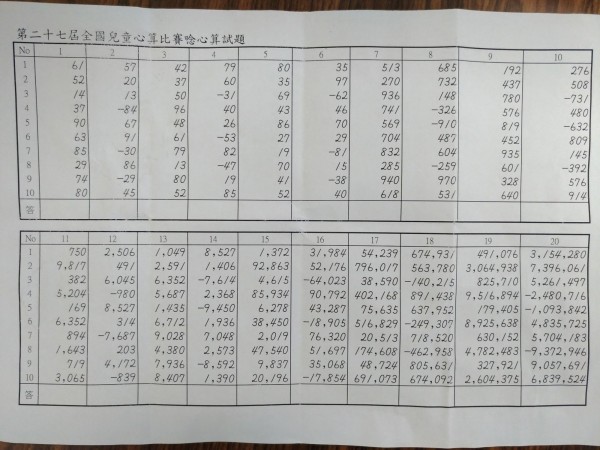 第二十七屆全國兒童心算比賽唸心算試題
No 1 2 3 4 5 6 7 8 9 10
1 61 57 42 79 80 35 513 685 192 276
2 52 20 37 60 35 97 270 732 437 508
3 14 13 50 -31 69 -62 936 148 780 -731
4 37 -84 96 40 43 46 741 -326 576 480
5 90 67 48 26 86 70 569 -910 819 -632
6 63 91 61 -53 27 29 704 487 452 809
7 85 -30 79 82 19 -81 832 604 935 145
8 29 86 13 -47 70 15 285 -259 601 -392
9 74 -29 80 19 41 -38 940 970 328 576
10 80 45 52 85 52 40 618 531 640 914
答
No 11 12 13 14 15 16 17 18 19 20
1 750 2,506 1,049 8,527 1,372 31,984 54,239 674,931 491,076 3,154,280
2 9,817 491 2,591 1,406 92,863 52,176 796,017 563,780 3,064,938 7,396,061
3 382 6,045 6,352 -7,614 4,615 -64,023 38,590 -140,215 825,710 5,261,497
4 5,204 -980 5,687 2,368 85,934 90,792 402,168 891,438 9,516,894 -2,480,716
5 169 8,527 1,435 -9,450 6,278 43,287 75,635 637,952 179,405 -1,093,842
6 6,352 314 6,712 1,936 38,450 -18,905 516,829 -249,307 8,925,638 4,835,725
7 894 -7,687 9,028 7,048 2,019 76,320 20,513 718,520 630,152 5,704,183
8 1,643 203 4,380 2,573 47,540 51,697 174,608 -462,958 4,782,483 -9,372,946
9 719 4,172 7,936 -8,592 9,837 35,068 48,724 805,631 327,921 9,057,691
10 3,065 -839 8,407 1,390 20,196 -17,854 691,073 674,092 2,604,375 6,839,524
答